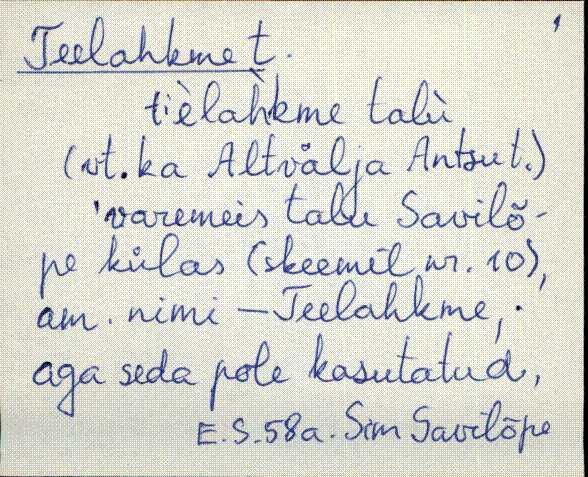 Teelahkme t.
tièlah̀kme talù
(vt. ka Altvälja Antsu t.)
'varemeis talu Savilõ-
pe külas (skeemil nr. 10),
am. nimi — Teelahkme,
aga seda pole kasutatud,
E.S. 58a. Sim Savilõpe